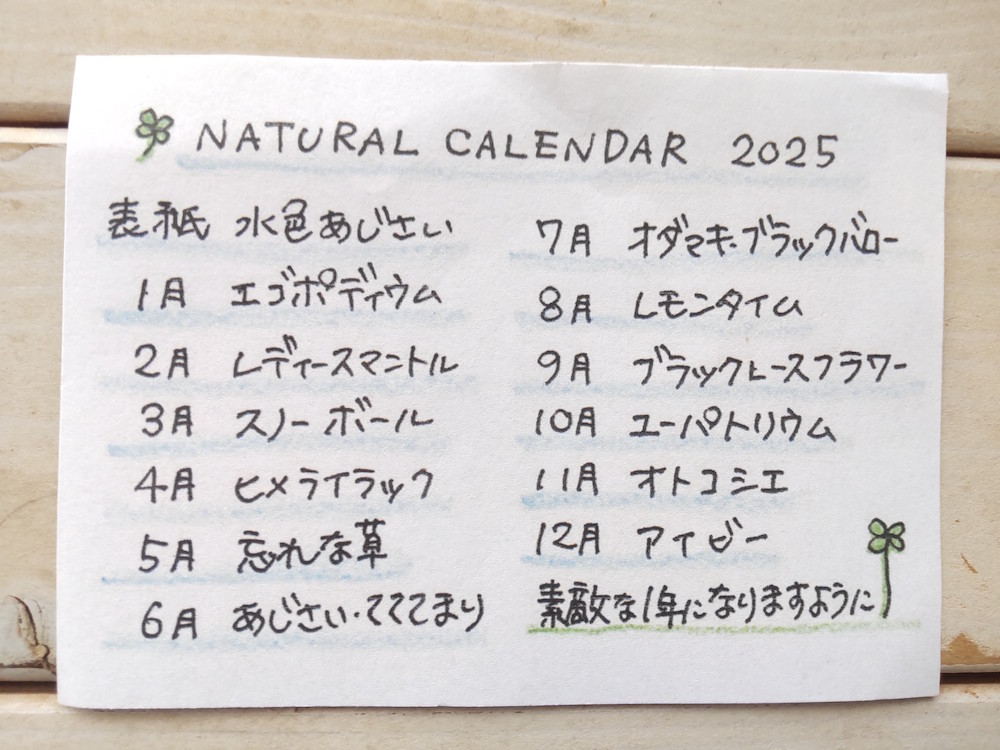 NATURAL CALENDAR 2025
表紙 水色あじさい
1月 エゴポディウム
2月 レディースマントル
3月 スノーボール
4月 ヒメライラック
5月 忘れな草
6月 あじさい・てててまり
7月 オダマキ・ブラックバロー
8月 レモンタイム
9月 ブラックレースフラワー
10月 ユーパトリウム
11月 オトコシエ
12月 アイビー
素敵な1年になりますように